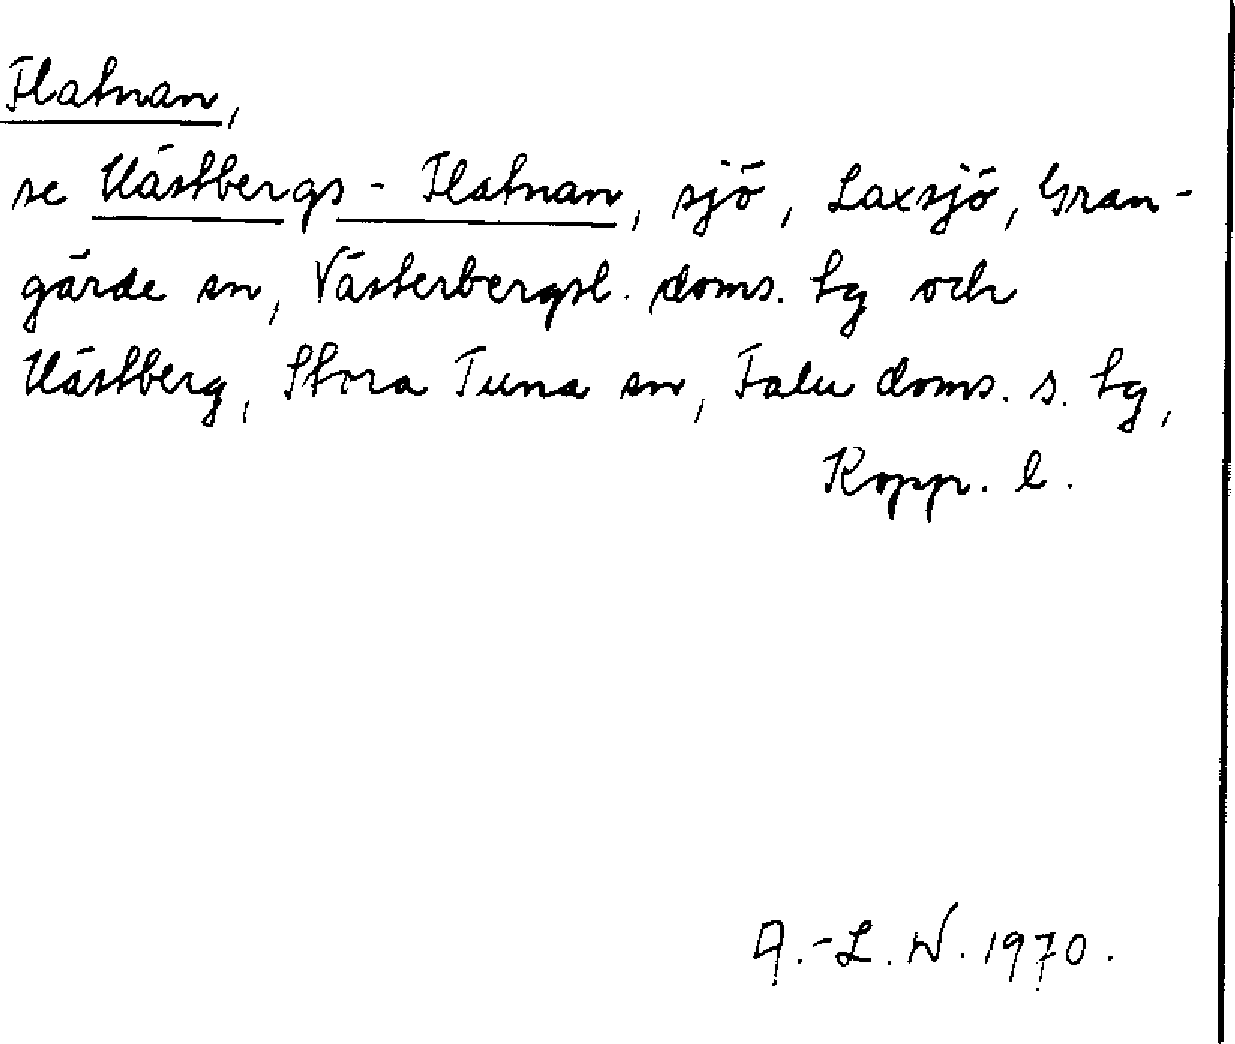 Flatnan,
se Uästbergs-Flatnan, sjö, Laxsjö, Gran-
gärde sn, Västerbergsl. doms. tg och
Uästberg, Stora Tuna sn, Falu doms. s. tg,
Kopp. l.
A.-L. W. 1970.